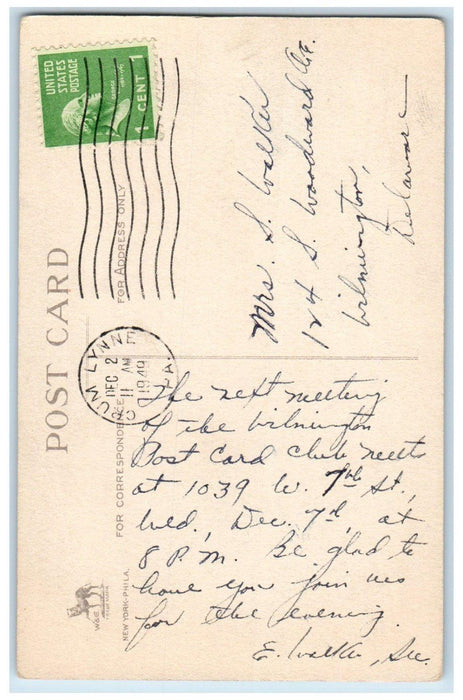 UNITED
STATES
POSTAGE
1 CENT 1
POST CARD
FOR ADDRESS ONLY
CRUM LYNNE
PA.
DEC 2
11 AM
1949
Mrs. S. Walker
124 S. Woodward Av.
Wilmington,
Delaware
FOR CORRESPONDENCE
The next meeting
of the Wilmington
Post Card Club meets
at 1039 W. 7th St.,
Wed., Dec. 7th, at
8 P.M. Be glad to
have you join us
for the evening.
E. Walker, Sec.
W&B
TRADE MARK
NEW YORK-PHILA.